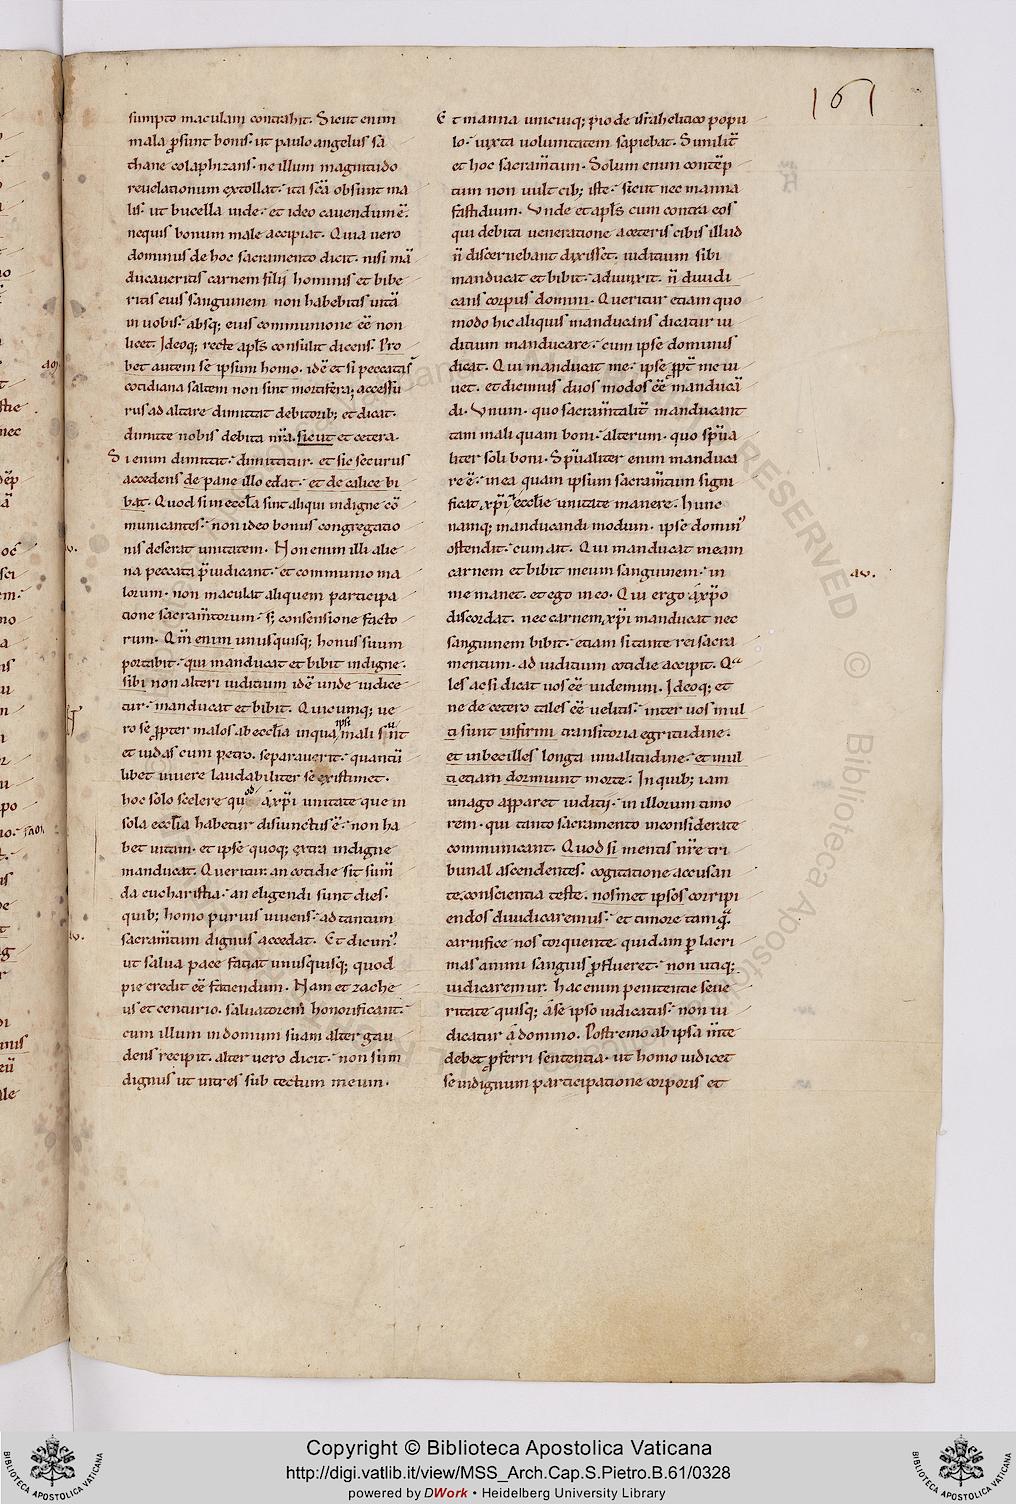 161
sumpto maculam contrahit. Sicut enim
mala ꝓsunt bonis. ut paulo angelus sa
thane colaphizans. ne illum magnitudo
reuelationum extollat. ita sc̄a obsunt ma
lis. ut bucella iude. et ideo cauendum ē.
nequis bonum male accipiat. Quia uero
dominus de hoc sacramento dicit. nisi mā
ducaueritis carnem filij hominis et bibe
ritis eius sanguinem non habebitis uitā
in uobis. absq; eius communione eē non
licet. Ideoq; recte apl̄s consulit dicens. Pro
bet autem se ipsum homo. idē et si peccata s̄
cotidiana saltem non sint mortifera; accessu
rus ad altare dimittat debitorib; et dicat.
dimitte nobis debita nr̄a. sicut et cetera.
Si enim dimittit. dimittitur. et sic securus
accedens de pane illo edat. et de calice bi
bat. Quod si in eccl̄a sint aliqui indigne cō
municantes. non ideo bonus congregatio
nis deserat unitatem. Non enim illi alie
na peccata p̄iudicant. et communio ma
lorum. non maculat aliquem participa
tione sacram̄torum. s; consensione facto
rum. Qm̄ enim unusquisq; honus suum
portabit. qui manducat et bibit indigne.
sibi non alteri iuditium idē unde iudice
tur. manducat et bibit. Quicumq; ue
ro se ꝓpter malos ab eccl̄ia in qua ipsi mali s̄nt
et iudas cum petro. separauerit. quantū
libet uiuere laudabiliter se existimet.
hoc solo scelere quod á xp̄i unitate que in
sola eccl̄ia habetur disiunctus ē. non ha
bet uitam. et ipse quoq; extra indigne
manducat. Queritur. an cotidie sit sum̄
da eucharistia. an eligendi sunt dies.
quib; homo purius uiuens. ad tantum
sacram̄tum dignus accedat. Et dicunt̉
ut salua pace faciat unusquisq; quod
pie credit eē faciendum. Nam et zache
us et centurio. saluatorem honorificant.
cum illum in domum suam alter gau
dens recipit. alter uero dicit. non sum
dignus ut intres sub tectum meum.
Et manna unicuiq; pio de isrł̄ahelitico popu
lo. iuxta uoluntatem sapiebat. Similit̄
et hoc sacram̄tum. Solum enim contēp
tum non uult cib; iste. sicut nec manna
fastidium. Unde et apl̄s cum contra eos
qui debita ueneratione a ceteris cibis illud
n̄ discernebant dixisset. iuditium sibi
manducat et bibit. adiunxit. n̄ diiudi
cans corpus domini. Queritur etiam quo
modo hic aliquis manducans dicatur iu
ditium manducare. cum ipse dominus
dicat. Qui manducat me. ipse ꝓpt̄ me ui
uet. et dicimus duos modos eē manducā
di. Unum. quo sacram̄talit̄ manducant
tam mali quam boni. alterum. quo sp̄ua
liter soli boni. Sp̄ualiter enim manduca
re ē. in ea quam ipsum sacram̄tum signi
ficat xp̄i eccl̄ie unitate manere. hunc
namq; manducandi modum. ipse domin᾽
ostendit. cum ait. Qui manducat meam
carnem et bibit meum sanguinem. in
me manet. et ego in eo. Qui ergo á xp̄o
discordat. nec carnem xp̄i manducat nec
sanguinem bibit. etiam si tante rei sacra
mentum. ad iuditium cotidie accipit. Qua
les ac si dicat uos eē uidemini. Ideoq; et
ne de cetero tales eē uelitis. inter uos mul
ti sunt infirmi transitoria egritudine.
et inbecilles longa inualitudine. et mul
ti etiam dormiunt morte. In quib; iam
imago apparet iuditij. in illorum timo
rem. qui tanto sacramento inconsiderate
communicant. Quod si mentis nr̄e tri
bunal ascendentes. cogitatione accusan
te. conscientia teste. nosmet ipsos corripi
endos diiudicaremus. et timore tamq̄
carnifice nos torquente quidam ꝑ lacri
mas animi sanguis ꝓflueret. non utiq;
iudicaremur. hac enim penitentie seue
ritate quisq; á se ipso iudicatus. non iu
dicatur á domino. Postremo ab ipsa m̄te
debet ꝓferri sententia. ut homo iudicet
se indignum participatione corporis et
AV.
Copyright © Biblioteca Apostolica Vaticana
http://digi.vatlib.it/view/MSS_Arch.Cap.S.Pietro.B.61/0328
powered by DWork • Heidelberg University Library